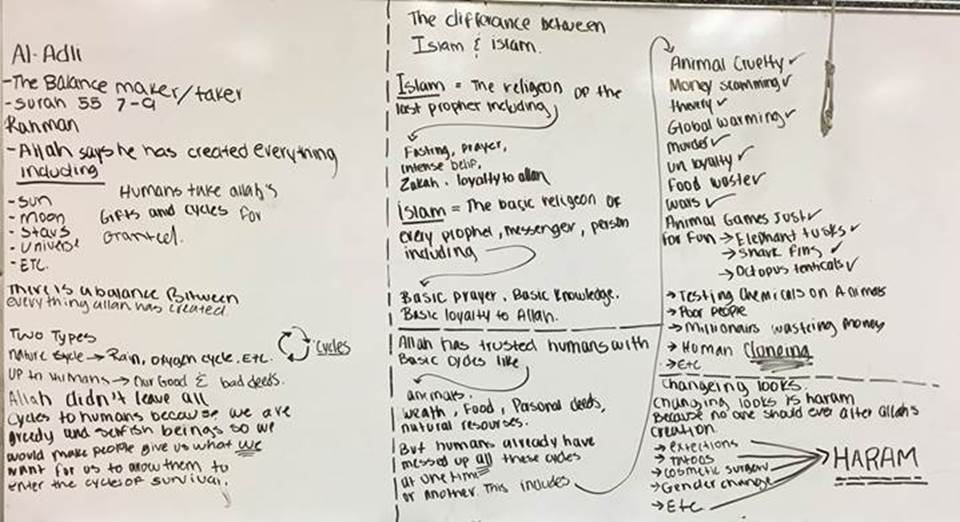 Al-Adli
-The Balance maker/taker
-surah 55 7-9
Rahman
-Allah says he has created everything
including
-sun
-moon
-stars
-universe
-ETC.
Humans take allah's
Gifts and cycles for
Granted.
There is a balance Between
everything allah has created.
Two Types
nature cycle → Rain, oxygen cycle, ETC.
cycles
UP to Humans → Our Good & bad deeds.
Allah didn't leave all
cycles to humans because we are
greedy and selfish beings so we
would make people give us what we
want for us to allow them to
enter the cycles of survival.
The difference between
Islam & islam.
Islam = The religeon of the
last prophet including
Fasting, prayer,
intense belif,
Zakah. loyalty to allah
islam = The basic religeon of
every prophet, messenger, person
including
Basic prayer, Basic knowledge.
Basic loyalty to Allah.
Allah has trusted humans with
Basic cycles like
animals.
Wealth, Food, Personal deeds,
natural resourses.
But humans already have
messed up all these cycles
at one time
or another. This includes
Animal Cruelty ✓
Money scamming ✓
theivery ✓
Global warming ✓
murder ✓
un loyalty ✓
Food waster ✓
wars ✓
Animal Games Just ✓
for fun → Elephant tusks ✓
→ shark fins ✓
→ Octopus tenticals ✓
→ Testing Chemicals on Animals
→ Poor people
→ Millionairs wastring money
→ Human Cloneing
→ Etc
Changeing looks.
changing looks is haram
Because no one should ever alter allah's
creation.
→ extections
→ Tatoos
→ cosmetic surgery
→ Gender change
→ Etc
HARAM